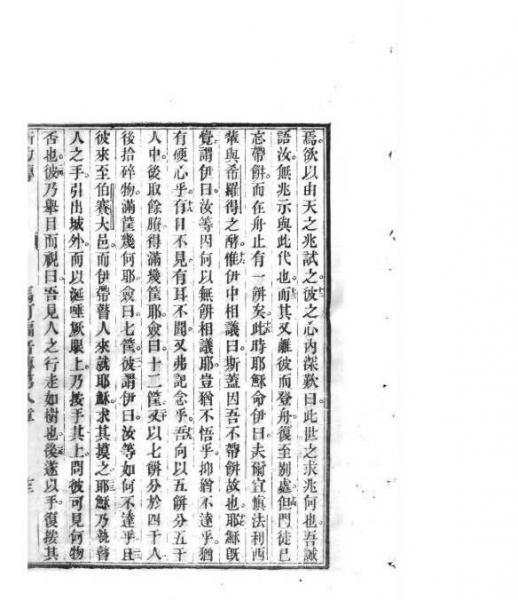 焉欲以由天之兆試之彼之心內深歎曰此世之求兆何也吾誠
語汝無兆示與此代也而其又離彼而登舟復至別處但門徒已
忘帶餅而在舟止有一餅矣此時耶穌命伊曰夫爾宜慎法利西
輩與希羅得之酵惟伊中相議曰斯蓋因吾不帶餅故也耶穌旣
覺謂伊曰汝等因何以無餅相議耶豈猶不悟乎抑猶不達乎猶
有硬心乎有目不見有耳不聞又弗記念乎吾向以五餅分五千
人中後取餘屑得滿幾筐耶僉曰十二筐又以七餅分於四千人
後拾碎物滿筐幾何耶僉曰七筐彼謂伊曰汝等如何不達乎且
彼來至伯賽大邑而伊帶瞽人來就耶穌求其摸之耶穌乃執瞽
人之手引出城外而以涎唾厥眼上乃按手其上問彼可見何物
否也彼乃舉目而視曰吾見人之行走如樹也後遂以手復按其
馬可福音傳第八章